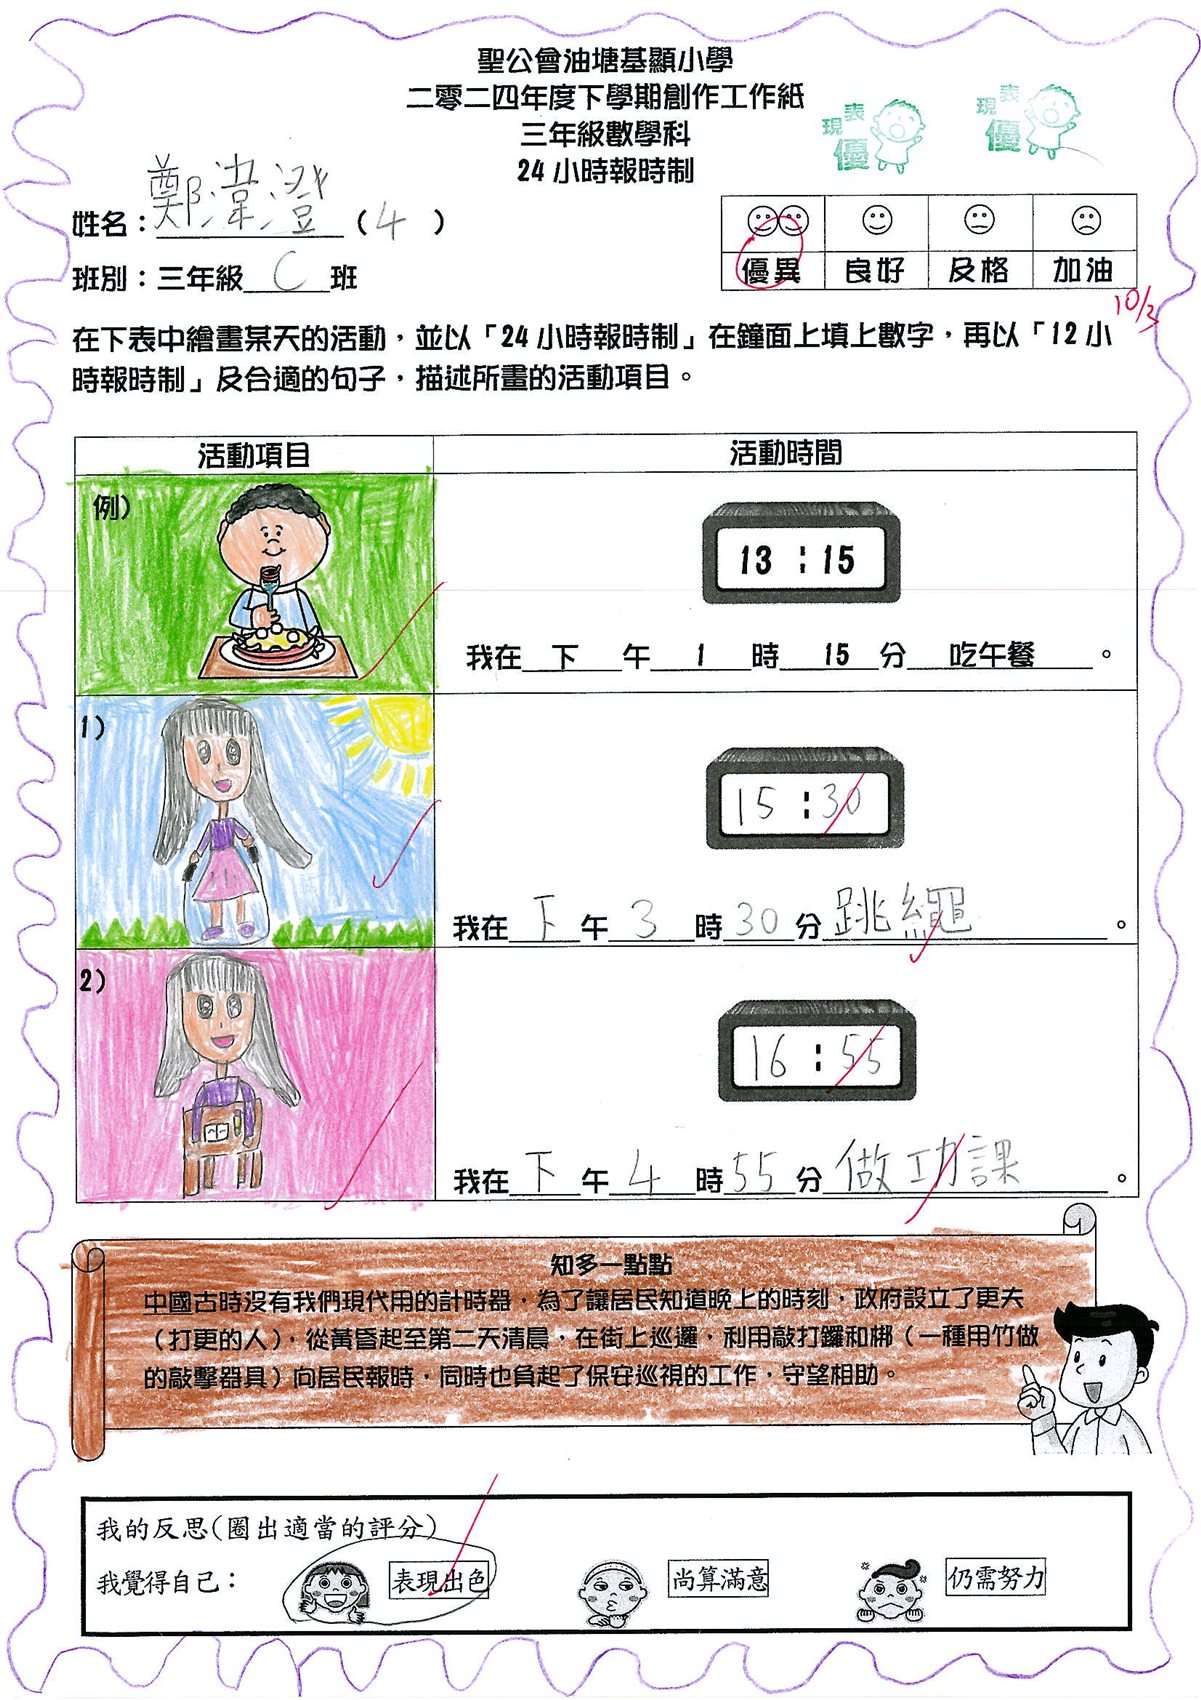 聖公會油塘基顯小學
二零二四年度下學期創作工作紙
三年級數學科
24 小時報時制
表現優
表現優
姓名：鄭漳澄（4）
班別：三年級 C 班
優異 良好 及格 加油
10/3
在下表中繪畫某天的活動，並以「24 小時報時制」在鐘面上填上數字，再以「12 小
時報時制」及合適的句子，描述所畫的活動項目。
活動項目 活動時間
例）
13：15
我在 下 午 1 時 15 分 吃午餐 。
1）
15：30
我在 下 午 3 時 30 分 跳繩 。
2）
16：55
我在 下 午 4 時 55 分 做功課 。
知多一點點
中國古時沒有我們現代用的計時器，為了讓居民知道晚上的時刻，政府設立了更夫
（打更的人），從黃昏起至第二天清晨，在街上巡邏，利用敲打鑼和梆（一種用竹做
的敲擊器具）向居民報時，同時也負起了保安巡視的工作，守望相助。
我的反思（圈出適當的評分）
我覺得自己： 表現出色 尚算滿意 仍需努力